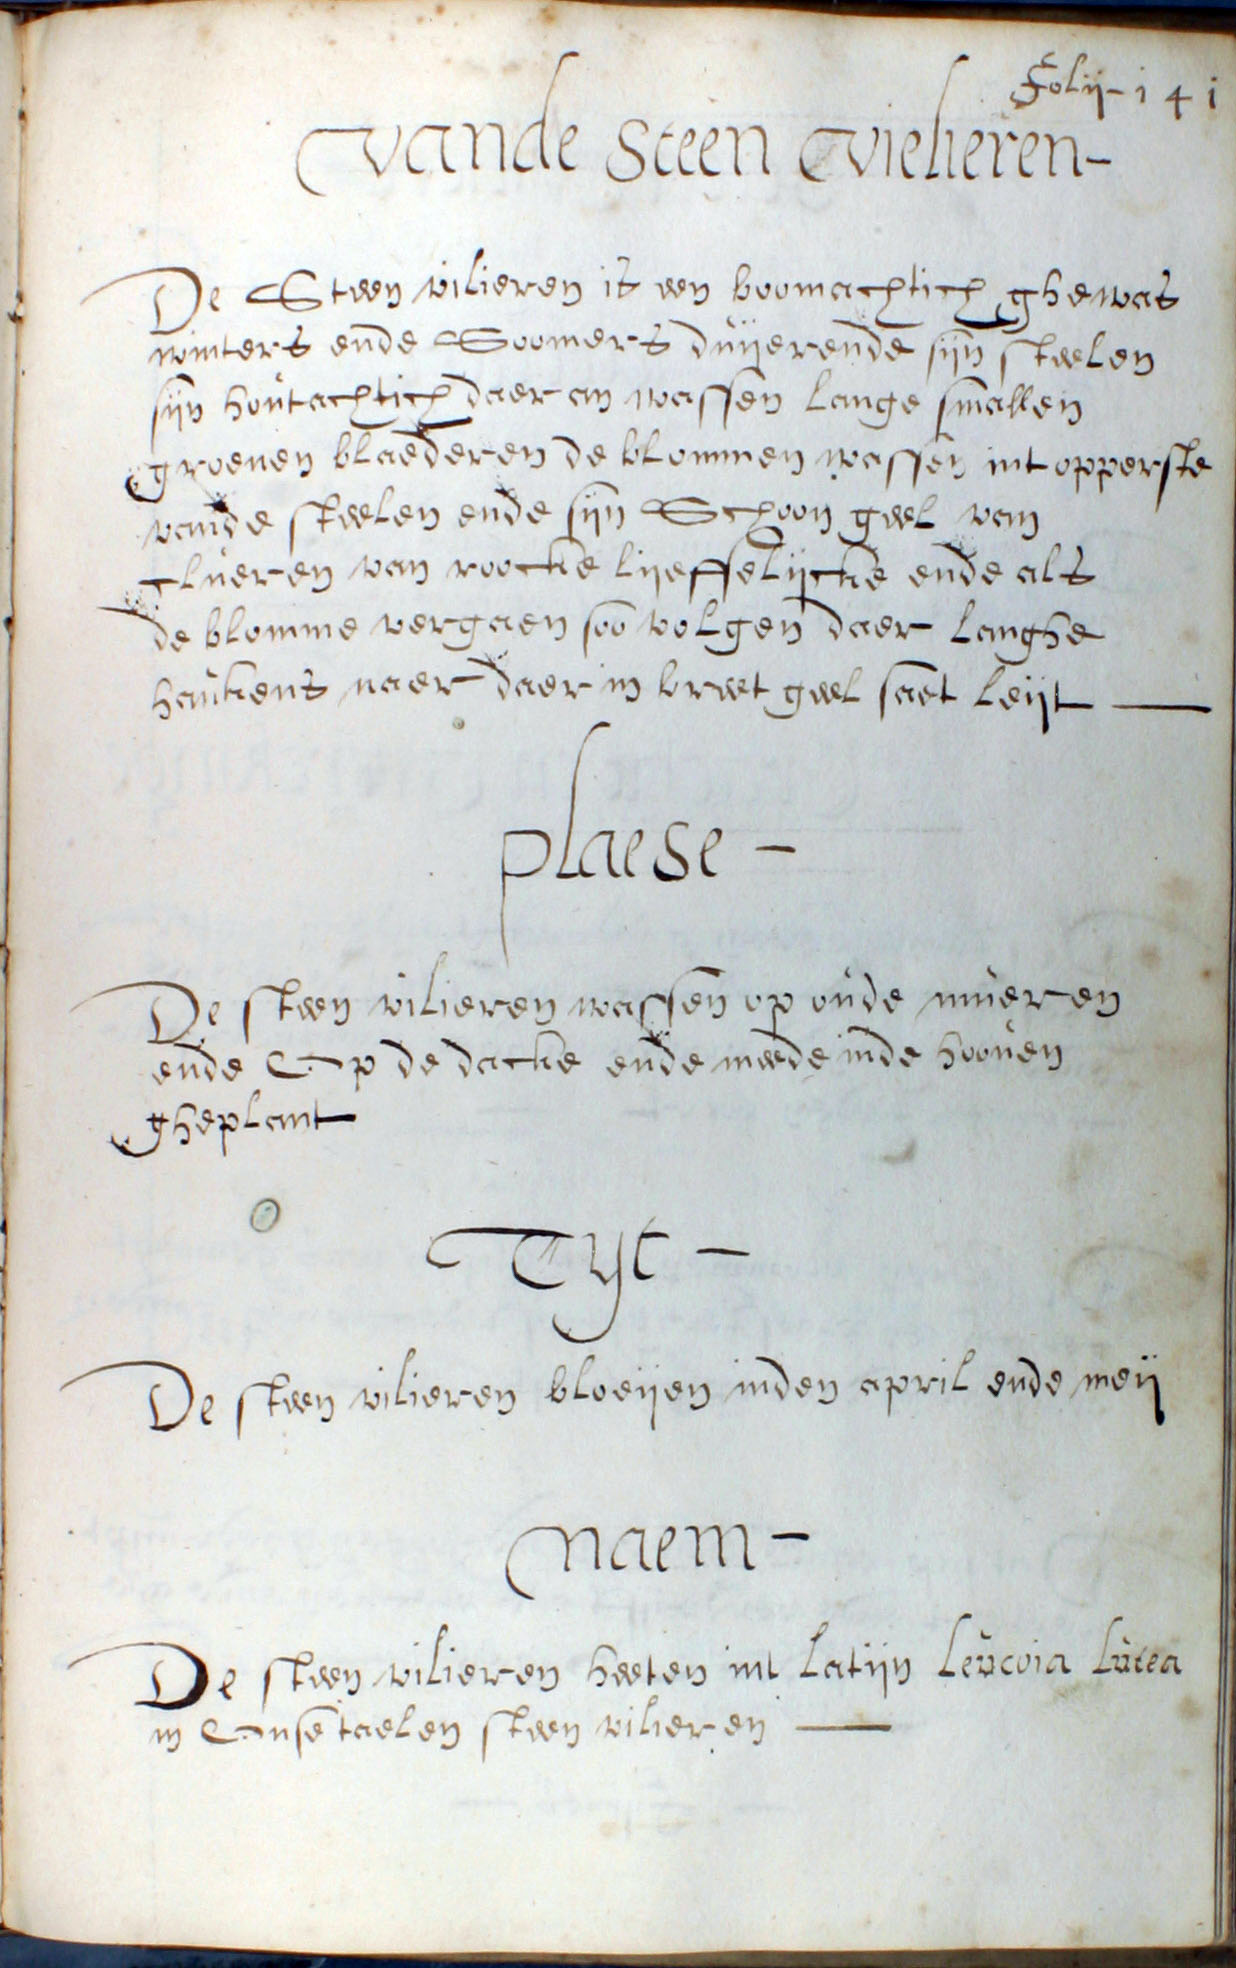 Folij - 141
Vande Steen Vielieren -
De Steen vilieren is een boomachtich ghewas
winters ende Soomers duijerende sijn steelen
sijn houtachtich daer an wassen lange smallen
groenen blaederen de blommen wassen int opperste
vande steelen ende sijn Schoon geel van
clueren van roocke lijeffelijcke ende als
de blomme vergaen soo volgen daer langhe
haukens naer daer in breet geel saet leijt
plaese -
De steen vilieren wassen op oude mueren
ende Op de dacke ende meede inde hooven
gheplant
Tyt -
De steen vilieren bloeijen inden april ende meij
Naem -
De steen vilieren heeten int Latijn Leucoia Lutea
in Onse taelen steen vilieren